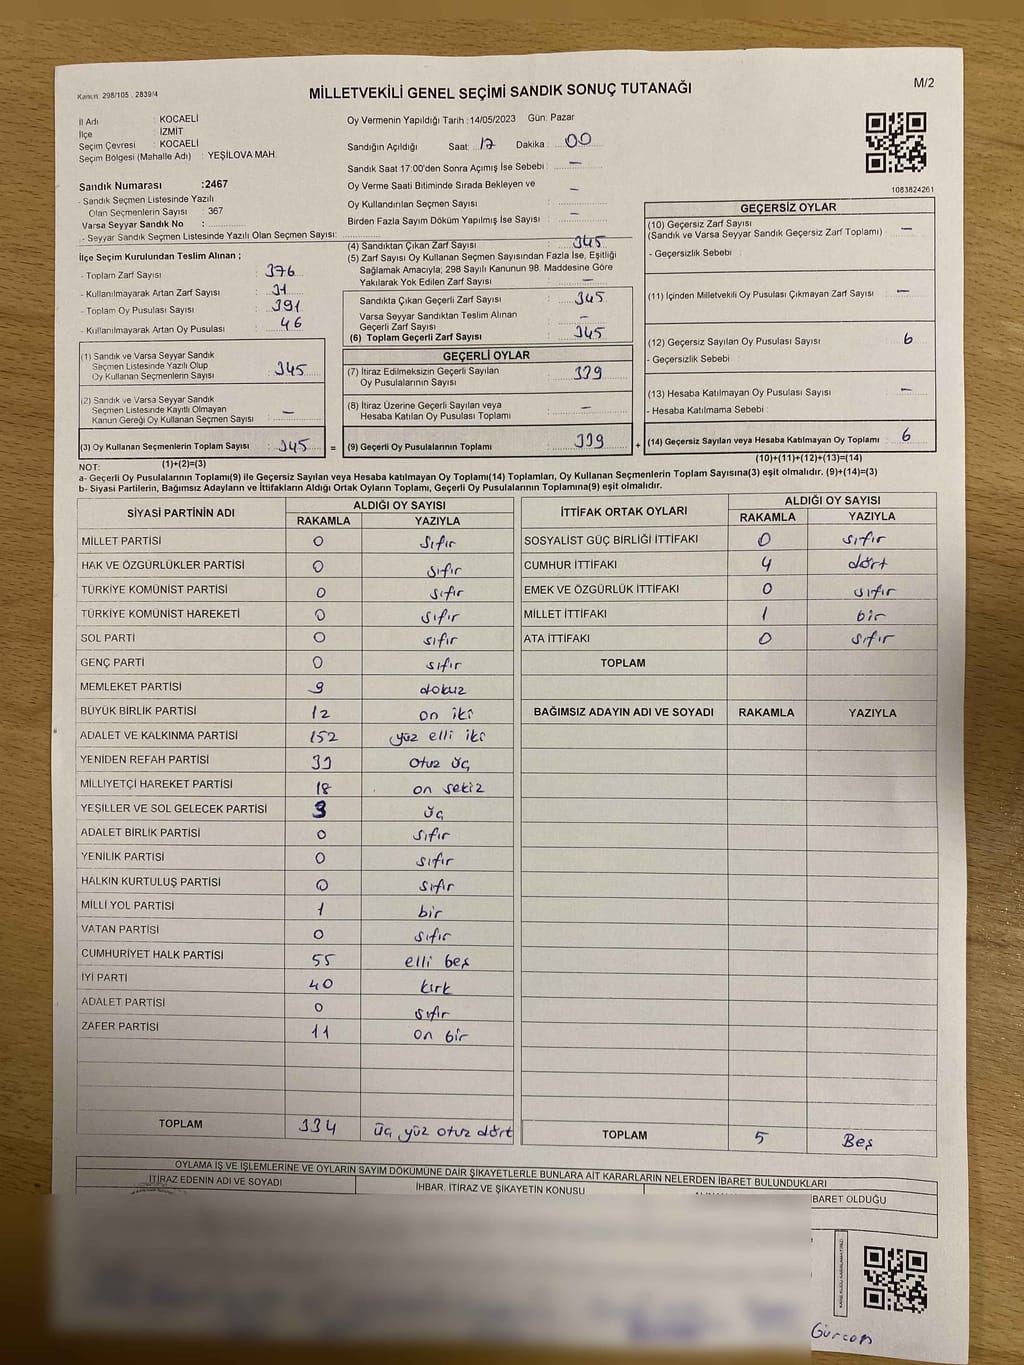 Kanun: 298/105 . 2839/4
MİLLETVEKİLİ GENEL SEÇİMİ SANDIK SONUÇ TUTANAĞI
M/2
İl Adı : KOCAELİ
İlçe : İZMİT
Seçim Çevresi : KOCAELİ
Seçim Bölgesi (Mahalle Adı) : YEŞİLOVA MAH.
Sandık Numarası :2467
- Sandık Seçmen Listesinde Yazılı
Olan Seçmenlerin Sayısı : 367
Varsa Seyyar Sandık No :
- Seyyar Sandık Seçmen Listesinde Yazılı Olan Seçmen Sayısı:
Oy Vermenin Yapıldığı Tarih :14/05/2023 Gün: Pazar
Sandığın Açıldığı Saat: 17 Dakika : 00
Sandık Saat 17:00'den Sonra Açımış İse Sebebi : —
Oy Verme Saati Bitiminde Sırada Bekleyen ve
Oy Kullandırılan Seçmen Sayısı : —
Birden Fazla Sayım Döküm Yapılmış İse Sayısı : —
1083824261
İlçe Seçim Kurulundan Teslim Alınan ;
- Toplam Zarf Sayısı : 376
- Kullanılmayarak Artan Zarf Sayısı : 31
- Toplam Oy Pusulası Sayısı : 391
- Kullanılmayarak Artan Oy Pusulası : 46
(1) Sandık ve Varsa Seyyar Sandık
Seçmen Listesinde Yazılı Olup
Oy Kullanan Seçmenlerin Sayısı : 345
(2) Sandık ve Varsa Seyyar Sandık
Seçmen Listesinde Kayıtlı Olmayan
Kanun Gereği Oy Kullanan Seçmen Sayısı : —
(3) Oy Kullanan Seçmenlerin Toplam Sayısı : 345 =
(1)+(2)=(3)
(4) Sandıktan Çıkan Zarf Sayısı : 345
(5) Zarf Sayısı Oy Kullanan Seçmen Sayısından Fazla İse, Eşitliği
Sağlamak Amacıyla; 298 Sayılı Kanunun 98. Maddesine Göre
Yakılarak Yok Edilen Zarf Sayısı : —
Sandıkta Çıkan Geçerli Zarf Sayısı : 345
Varsa Seyyar Sandıktan Teslim Alınan
Geçerli Zarf Sayısı : —
(6) Toplam Geçerli Zarf Sayısı : 345
GEÇERLİ OYLAR
(7) İtiraz Edilmeksizin Geçerli Sayılan
Oy Pusulalarının Sayısı : 339
(8) İtiraz Üzerine Geçerli Sayılan veya
Hesaba Katılan Oy Pusulası Toplamı : —
(9) Geçerli Oy Pusulalarının Toplamı : 339 +
GEÇERSİZ OYLAR
(10) Geçersiz Zarf Sayısı
(Sandık ve Varsa Seyyar Sandık Geçersiz Zarf Toplamı) : —
- Geçersizlik Sebebi :
(11) İçinden Milletvekili Oy Pusulası Çıkmayan Zarf Sayısı : —
(12) Geçersiz Sayılan Oy Pusulası Sayısı : 6
- Geçersizlik Sebebi :
(13) Hesaba Katılmayan Oy Pusulası Sayısı : —
- Hesaba Katılmama Sebebi :
(14) Geçersiz Sayılan veya Hesaba Katılmayan Oy Toplamı : 6
(10)+(11)+(12)+(13)=(14)
NOT:
a- Geçerli Oy Pusulalarının Toplamı(9) ile Geçersiz Sayılan veya Hesaba katılmayan Oy Toplamı(14) Toplamları, Oy Kullanan Seçmenlerin Toplam Sayısına(3) eşit olmalıdır. (9)+(14)=(3)
b- Siyasi Partilerin, Bağımsız Adayların ve İttifakların Aldığı Ortak Oyların Toplamı, Geçerli Oy Pusulalarının Toplamına(9) eşit olmalıdır.
SİYASİ PARTİNİN ADI ALDIĞI OY SAYISI
RAKAMLA YAZIYLA
MİLLET PARTİSİ 0 sıfır
HAK VE ÖZGÜRLÜKLER PARTİSİ 0 sıfır
TÜRKİYE KOMÜNİST PARTİSİ 0 sıfır
TÜRKİYE KOMÜNİST HAREKETİ 0 sıfır
SOL PARTİ 0 sıfır
GENÇ PARTİ 0 sıfır
MEMLEKET PARTİSİ 9 dokuz
BÜYÜK BİRLİK PARTİSİ 12 on iki
ADALET VE KALKINMA PARTİSİ 152 yüz elli iki
YENİDEN REFAH PARTİSİ 33 otuz üç
MİLLİYETÇİ HAREKET PARTİSİ 18 on sekiz
YEŞİLLER VE SOL GELECEK PARTİSİ 3 üç
ADALET BİRLİK PARTİSİ 0 sıfır
YENİLİK PARTİSİ 0 sıfır
HALKIN KURTULUŞ PARTİSİ 0 sıfır
MİLLİ YOL PARTİSİ 1 bir
VATAN PARTİSİ 0 sıfır
CUMHURİYET HALK PARTİSİ 55 elli beş
İYİ PARTİ 40 kırk
ADALET PARTİSİ 0 sıfır
ZAFER PARTİSİ 11 on bir
TOPLAM 334 üç yüz otuz dört
İTTİFAK ORTAK OYLARI ALDIĞI OY SAYISI
RAKAMLA YAZIYLA
SOSYALİST GÜÇ BİRLİĞİ İTTİFAKI 0 sıfır
CUMHUR İTTİFAKI 4 dört
EMEK VE ÖZGÜRLÜK İTTİFAKI 0 sıfır
MİLLET İTTİFAKI 1 bir
ATA İTTİFAKI 0 sıfır
TOPLAM
BAĞIMSIZ ADAYIN ADI VE SOYADI RAKAMLA YAZIYLA
TOPLAM 5 Beş
OYLAMA İŞ VE İŞLEMLERİNE VE OYLARIN SAYIM DÖKÜMÜNE DAİR ŞİKAYETLERLE BUNLARA AİT KARARLARIN NELERDEN İBARET BULUNDUKLARI
İTİRAZ EDENİN ADI VE SOYADI İHBAR, İTİRAZ VE ŞİKAYETİN KONUSU
İBARET OLDUĞU
Gürcan